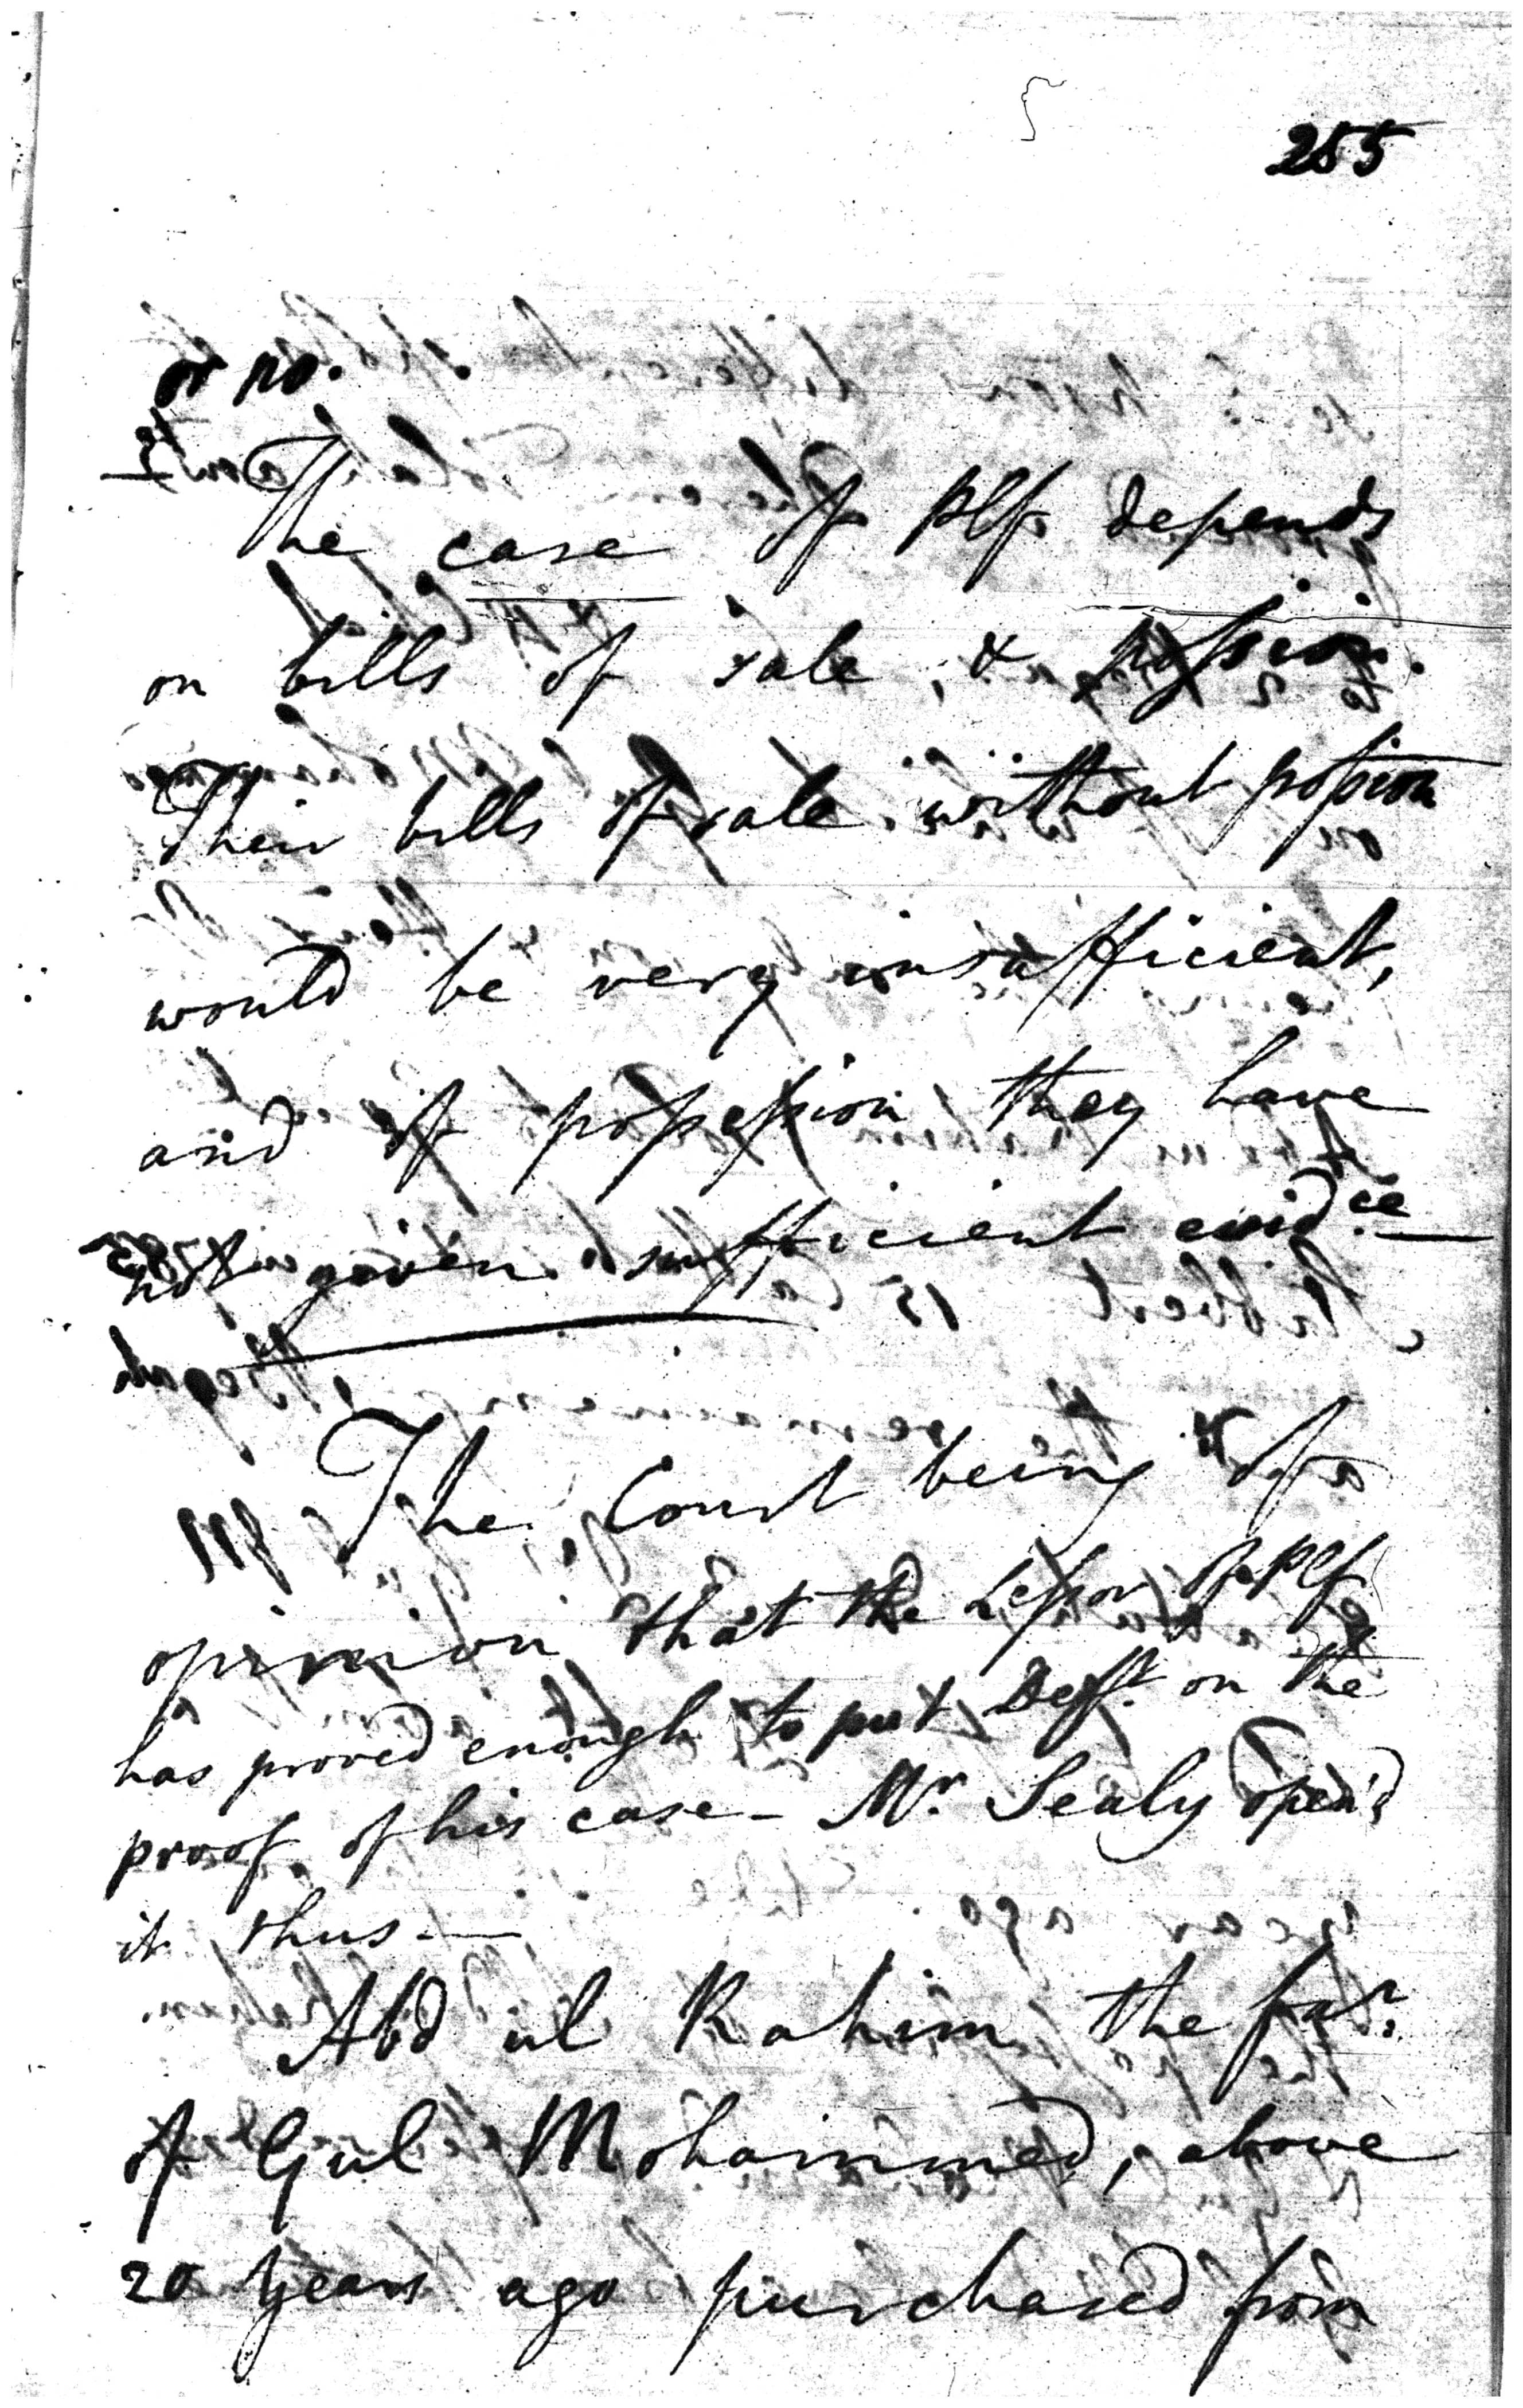 255
or no.
The case of Plf depends
on bills of sale, & possion.
Their bills of sale without possion
would be very insufficient,
and of possession they have
not given sufficient evid.ce
The Court being of
opinion that the Lessor of Plf
has proved enough to put Deft. on the
proof of his case - Mr. Sealy open'd
it thus -
Abd ul Rahim the far.
of Gul Mohammed, above
20 years ago purchased from